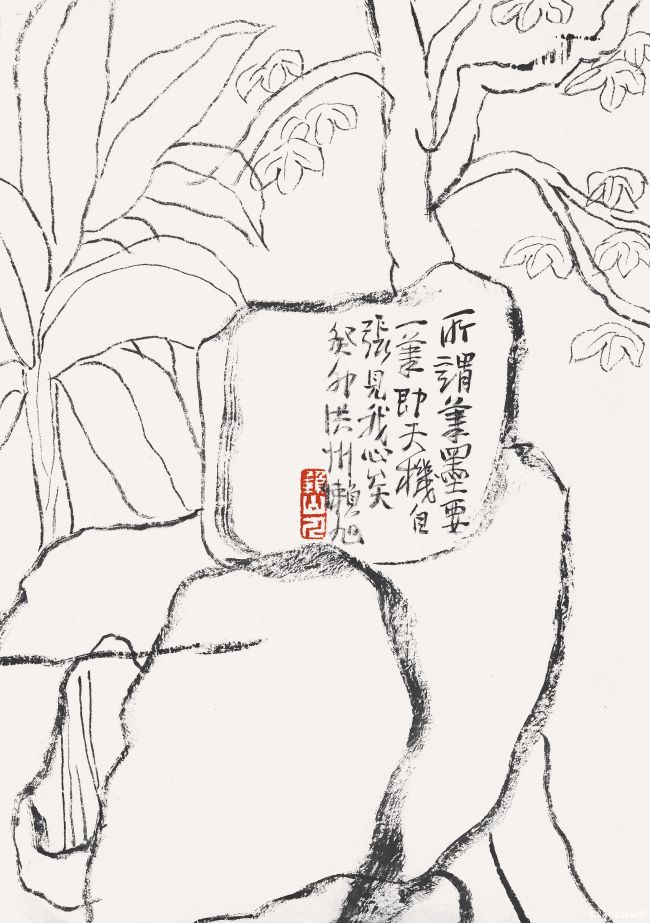 所谓笔墨要
一笔即天機自
張見我心矣
癸卯洪州賴旭